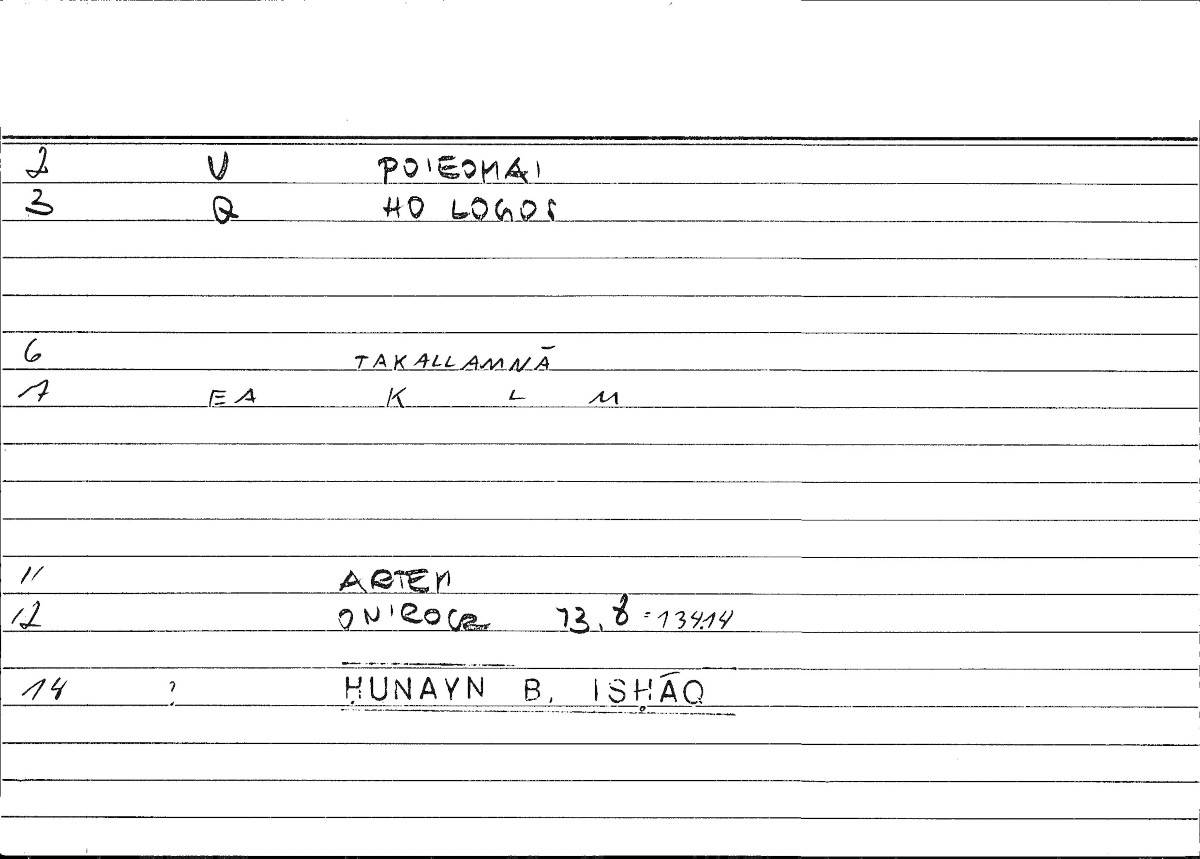 2 V POIEOMAI
3 Q HO LOGOS
6 TAKALLAMNĀ
7 EA K L M
11 ARTEM
12 ONIROCR 73,8=134.14
14 ? ḤUNAYN B. ISḤĀQ